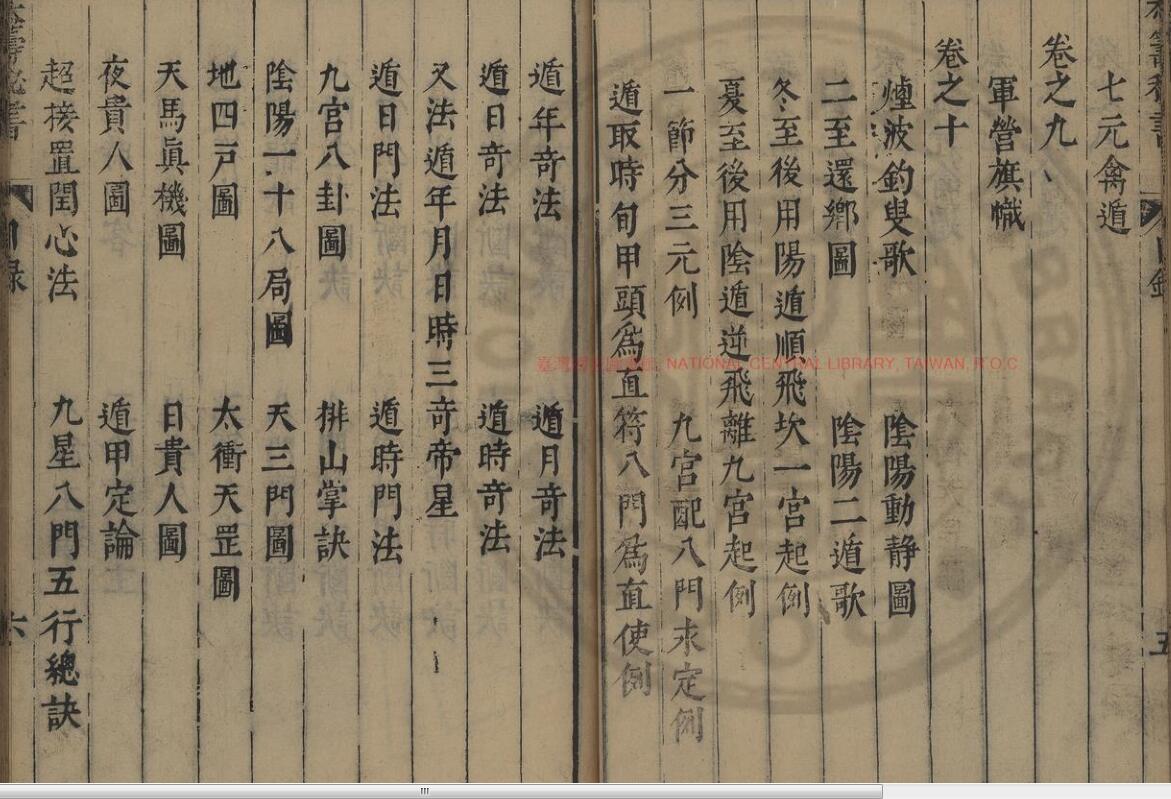 七元禽遁
卷之九
軍營旗幟
卷之十
煙波釣叟歌 陰陽動静圖
二至還鄉圖 陰陽二遁歌
冬至後用陽遁順飛坎一宮起例
夏至後用陰遁逆飛離九宮起例
一節分三元例 九宮配八門求定例
遁取時旬甲頭為直符八門為直使例
遁年奇法 遁月奇法
遁日奇法 遁時奇法
又法遁年月日時三奇帝星
遁日門法 遁時門法
九宮八卦圖 排山掌訣
陰陽一十八局圖 天三門圖
地四戸圖 太衝天罡圖
天馬眞機圖 日貴人圖
夜貴人圖 遁甲定論
超接置閏心法 九星八門五行總訣
目錄
六
NATIONAL CENTRAL LIBRARY, TAIWAN, R.O.C